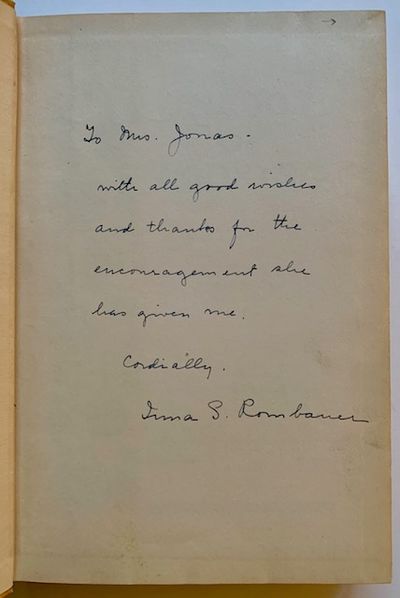 To Mrs. Jonas -
with all good wishes
and thanks for the
encouragement she
has given me.
Cordially.
Irma S. Rombauer